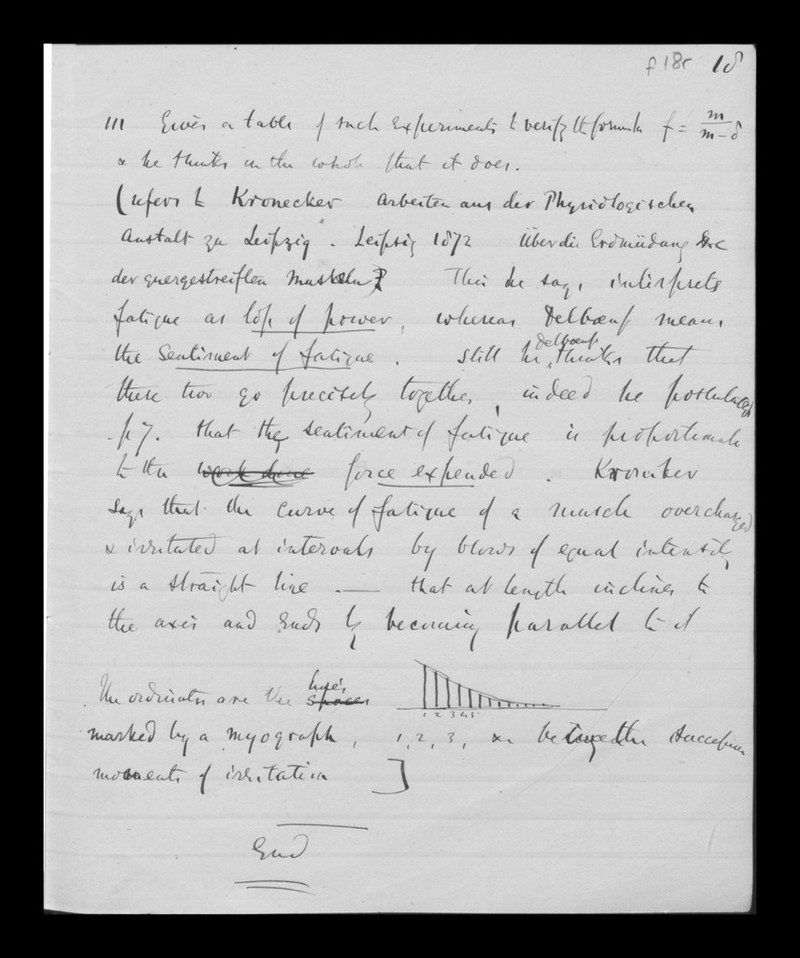 f 18r 18
111 Gives a table of such experiments to verify the formula f = m / m - δ
& he thinks on the whole that it does.
(refers to Kronecker Arbeiten aus der Physiologischen
Anstalt zu Leipzig. Leipzig 1872 Über die Ermüdung
der quergestreiften Muskeln This he says interprets
fatigue as loss of power, whereas Delbœuf means
the sentiment of fatigue. Still he Delbœuf thinks that
these two go precisely together, indeed he postulates
p 7. that the sentiment of fatigue is proportionate
to the work done force expended. Kronecker
says that the curve of fatigue of a muscle overcharged
& irritated at intervals by blows of equal intensity
is a straight line — that at length inclines to
the axis and ends by becoming parallel to it
The ordinates are the spaces lines
1 2 3 4 5
marked by a myograph, 1, 2, 3, &c being the successive
moments of irritation ]
End